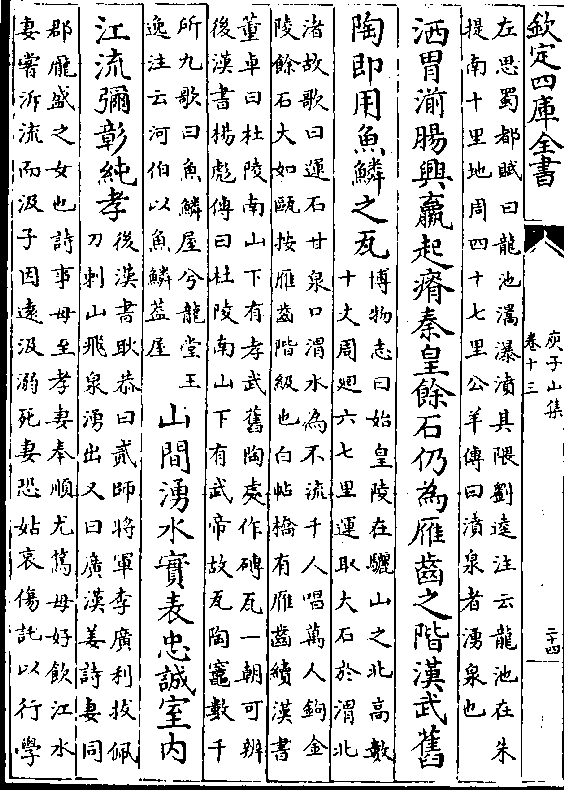 欽定四庫全書
庾子山集
卷十三
二十四
左思蜀都賦曰龍池㶁瀑濆其隈劉逵注云龍池在朱
提南十里地周四十七里公羊傳曰濆泉者湧泉也
洒胃湔腸興羸起瘠秦皇餘石仍為雁齒之階漢武舊
陶即用魚鱗之瓦
博物志曰始皇陵在驪山之北高數
十丈周迴六七里運取大石於渭北
渚故歌曰運石甘泉口渭水為不流千人唱萬人鉤金
陵餘石大如甌按雁齒階級也白帖橋有雁齒續漢書
董卓曰杜陵南山下有孝武舊陶處作磚瓦一朝可辨
後漢書楊彪傳曰杜陵南山下有武帝故瓦陶竈數千
所九歌曰魚鱗屋兮龍堂王
逸注云河伯以魚鱗蓋屋
山間湧水實表忠誠室内
江流彌彰純孝
後漢書耿恭曰貳師將軍李廣利拔佩
刀刺山飛泉湧出又曰廣漢姜詩妻同
郡龎盛之女也詩事母至孝妻奉順尤篤母好飲江水
妻嘗泝流而汲子因遠汲溺死妻恐姑哀傷託以行學